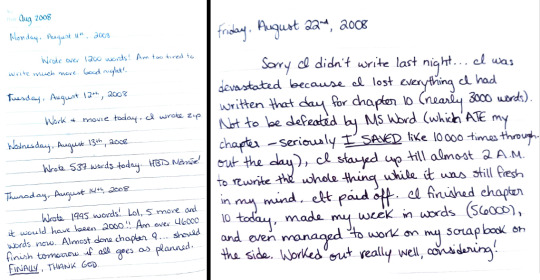 Aug 2008
Monday, August 11th, 2008
Wrote over 1200 words! Am too tired to
write much more. Good night!
Tuesday, August 12th, 2008
Work + movie today. I wrote zip
Wednesday, August 13th, 2008
Wrote 537 words today. HBD
Thursday, August 14th, 2008
Wrote 1995 words! Lol, 5 more and
it would have been 2000!! Am over 46000
words now. Almost done chapter 9... should
finish tomorrow if all goes as planned.
FINALLY, THANK GOD.
Friday, August 22nd, 2008
Sorry I didn't write last night... I was
devastated because I lost everything I had
written that day for chapter 10 (nearly 3000 words).
Not to be defeated by MS Word (which ATE my
chapter - seriously I SAVED like 10000 times through-
out the day), I stayed up till almost 2 A.M.
to rewrite the whole thing while it was still fresh
in my mind. It paid off. I finished chapter
10 today, made my week in words (56000),
and even managed to work on my scrapbook on
the side. Worked out really well, considering!